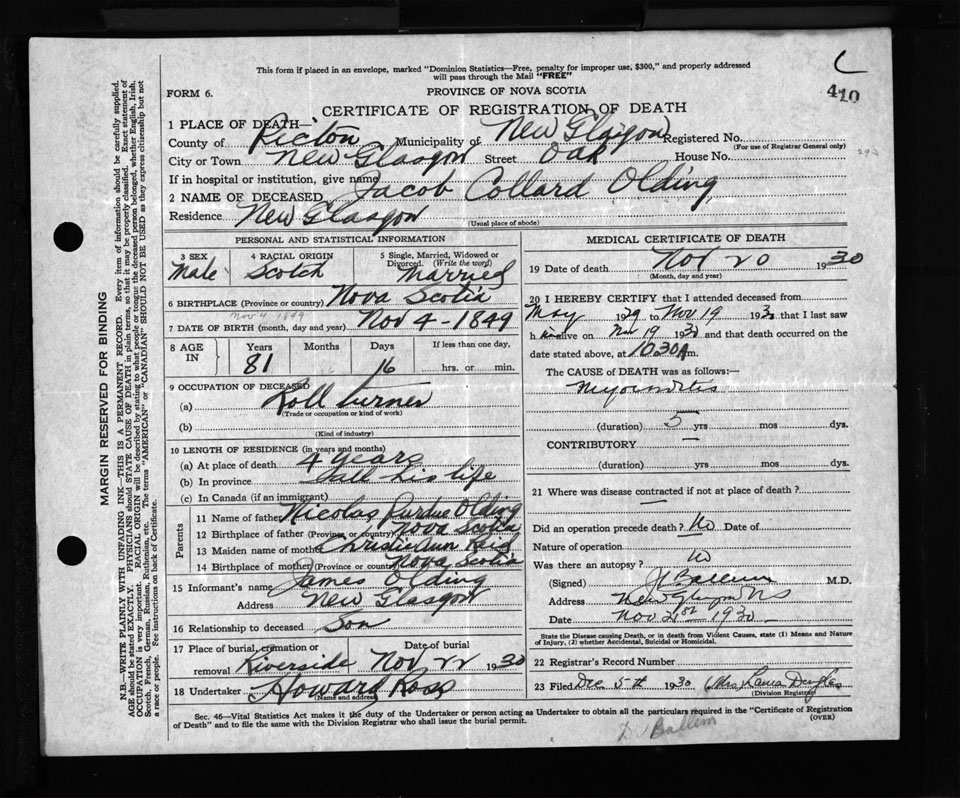 This form if placed in an envelope, marked "Dominion Statistics—Free, penalty for improper use, $300," and properly addressed
will pass through the Mail "FREE"
FORM 6.
PROVINCE OF NOVA SCOTIA
CERTIFICATE OF REGISTRATION OF DEATH
410
1 PLACE OF DEATH—
County of Pictou Municipality of New Glasgow Registered No.
(For use of Registrar General only)
City or Town New Glasgow Street Oak House No.
If in hospital or institution, give name
2 NAME OF DECEASED Jacob Collard Olding
Residence New Glasgow
(Usual place of abode)
PERSONAL AND STATISTICAL INFORMATION
3 SEX 4 RACIAL ORIGIN 5 Single, Married, Widowed or Divorced. (Write the word)
Male Scotch Married
6 BIRTHPLACE (Province or country) Nova Scotia
Nov 4 1849
7 DATE OF BIRTH (month, day and year) Nov 4-1849
8 AGE IN Years Months Days If less than one day,
81 16 hrs. or min.
9 OCCUPATION OF DECEASED
(a) Roll turner
(Trade or occupation or kind of work)
(b)
(Kind of industry)
10 LENGTH OF RESIDENCE (in years and months)
(a) At place of death 4 years
(b) In province all his life
(c) In Canada (if an immigrant)
Parents
11 Name of father Nicolas Purdue Olding
12 Birthplace of father (Province or country) Nova Scotia
13 Maiden name of mother Christi Ann Reid
14 Birthplace of mother (Province or country) Nova Scotia
15 Informant's name James Olding
Address New Glasgow
16 Relationship to deceased Son
17 Place of burial, cremation or Date of burial
removal Riverside Nov 22 1930
18 Undertaker Howard Ross
(Name and address)
MEDICAL CERTIFICATE OF DEATH
19 Date of death Nov 20 1930
(Month, day and year)
20 I HEREBY CERTIFY that I attended deceased from
May 1929 to Nov 19 1930 that I last saw
h im alive on Nov 19 1930 and that death occurred on the
date stated above, at 10.30 A m.
The CAUSE OF DEATH was as follows:—
Myocarditis
(duration) 5 yrs mos dys.
CONTRIBUTORY —
(duration) yrs mos dys.
21 Where was disease contracted if not at place of death?
Did an operation precede death? No Date of
Nature of operation
Was there an autopsy? No
(Signed) Ballem M.D.
Address New Glasgow NS
Date Nov 21st 1930
State the Disease causing Death, or in death from Violent Causes, state (1) Means and Nature
of Injury, (2) whether Accidental, Suicidal or Homicidal.
22 Registrar's Record Number
23 Filed Dec 5th 1930 Mrs
(Division Registrar)
Sec. 46—Vital Statistics Act makes it the duty of the Undertaker or person acting as Undertaker to obtain all the particulars required in the "Certificate of Registration
of Death" and to file the same with the Division Registrar who shall issue the burial permit.
(OVER)
Dr Ballem
MARGIN RESERVED FOR BINDING
N.B.—WRITE PLAINLY WITH UNFADING INK—THIS IS A PERMANENT RECORD. Every item of information should be carefully supplied.
AGE should be stated EXACTLY. PHYSICIANS should STATE CAUSE OF DEATH in plain terms, so that it may be properly classified. Exact statement of
OCCUPATION is very important. RACIAL ORIGIN will be described by stating to what people or tongue the deceased person belonged, whether English, Irish,
Scotch, French, German, Russian, Ruthenian, etc. The terms "AMERICAN" or "CANADIAN" SHOULD NOT BE USED as they express citizenship but not
a race or people. Fee instructions on back of Certificate.